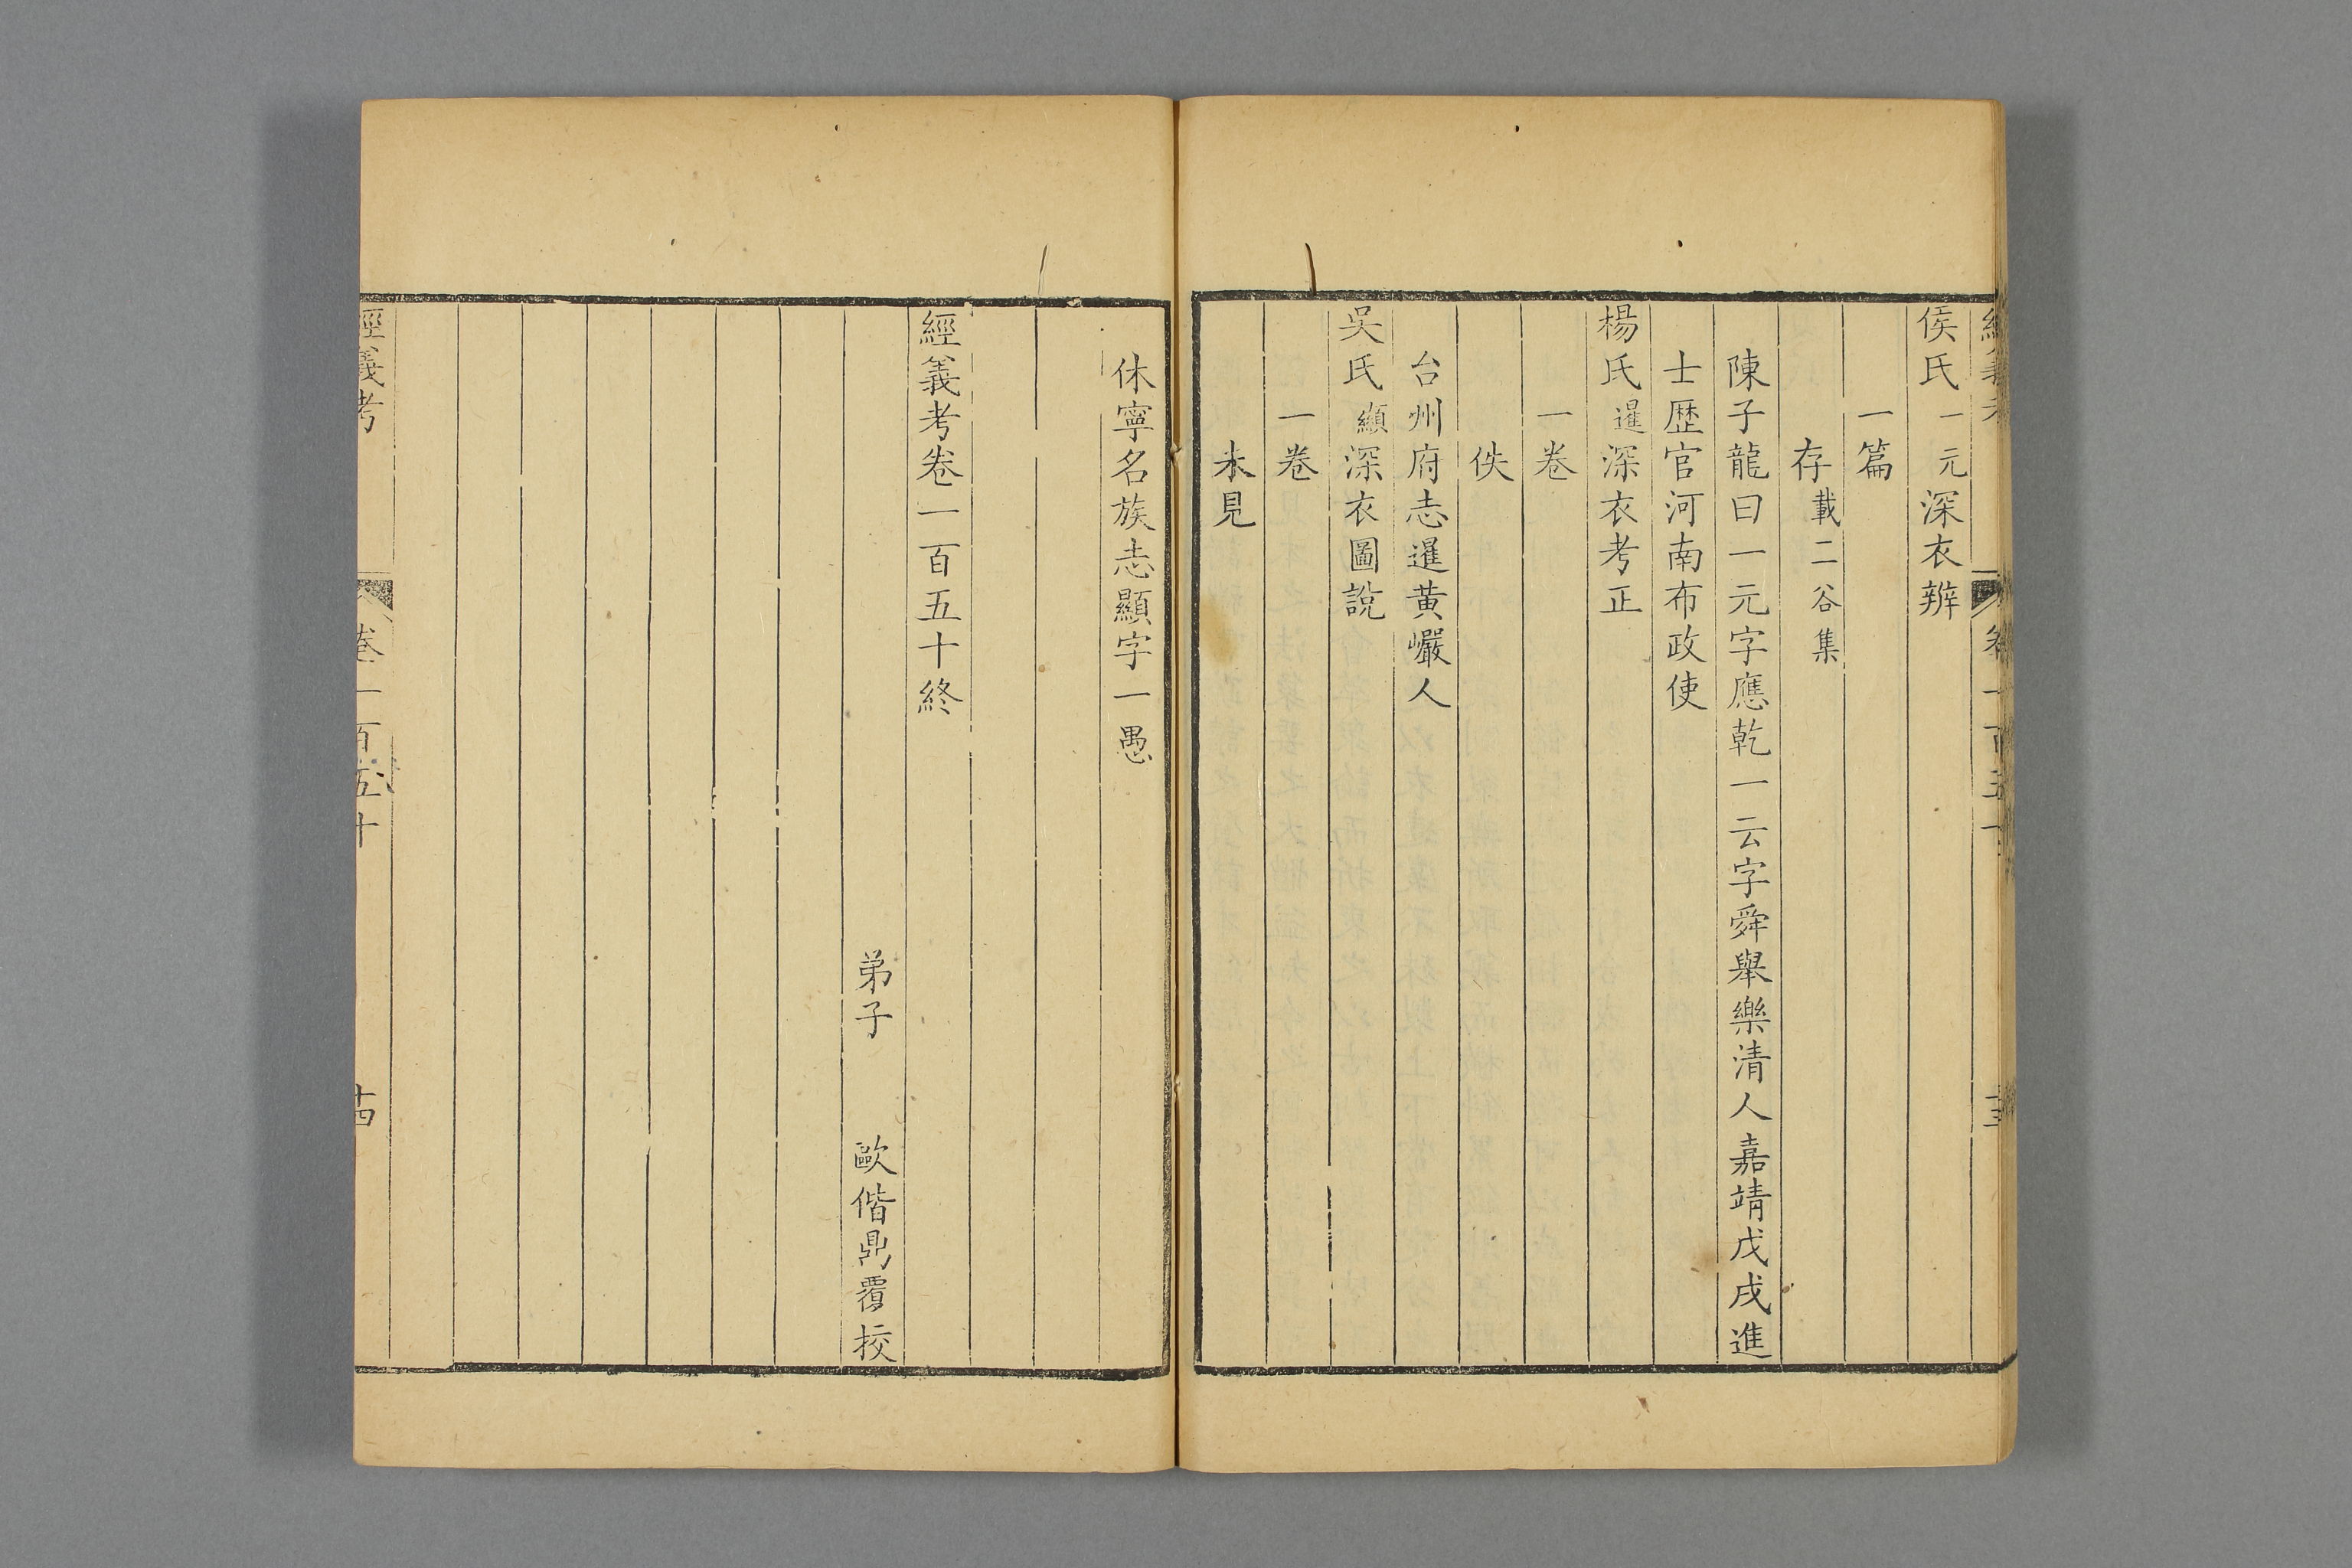 侯氏一元深衣辨
一篇
存載二谷集
陳子龍曰一元字應乾一云字舜舉樂清人嘉靖戊戌進
士歴官河南布政使
楊氏暹深衣考正
一卷
佚
台州府志暹黃巖人
吳氏顯深衣圖說
一卷
未見
休寧名族志顯字一愚
經義考卷一百五十終
弟子 歐偕鼎覆挍
經義考 卷一百五十 十四